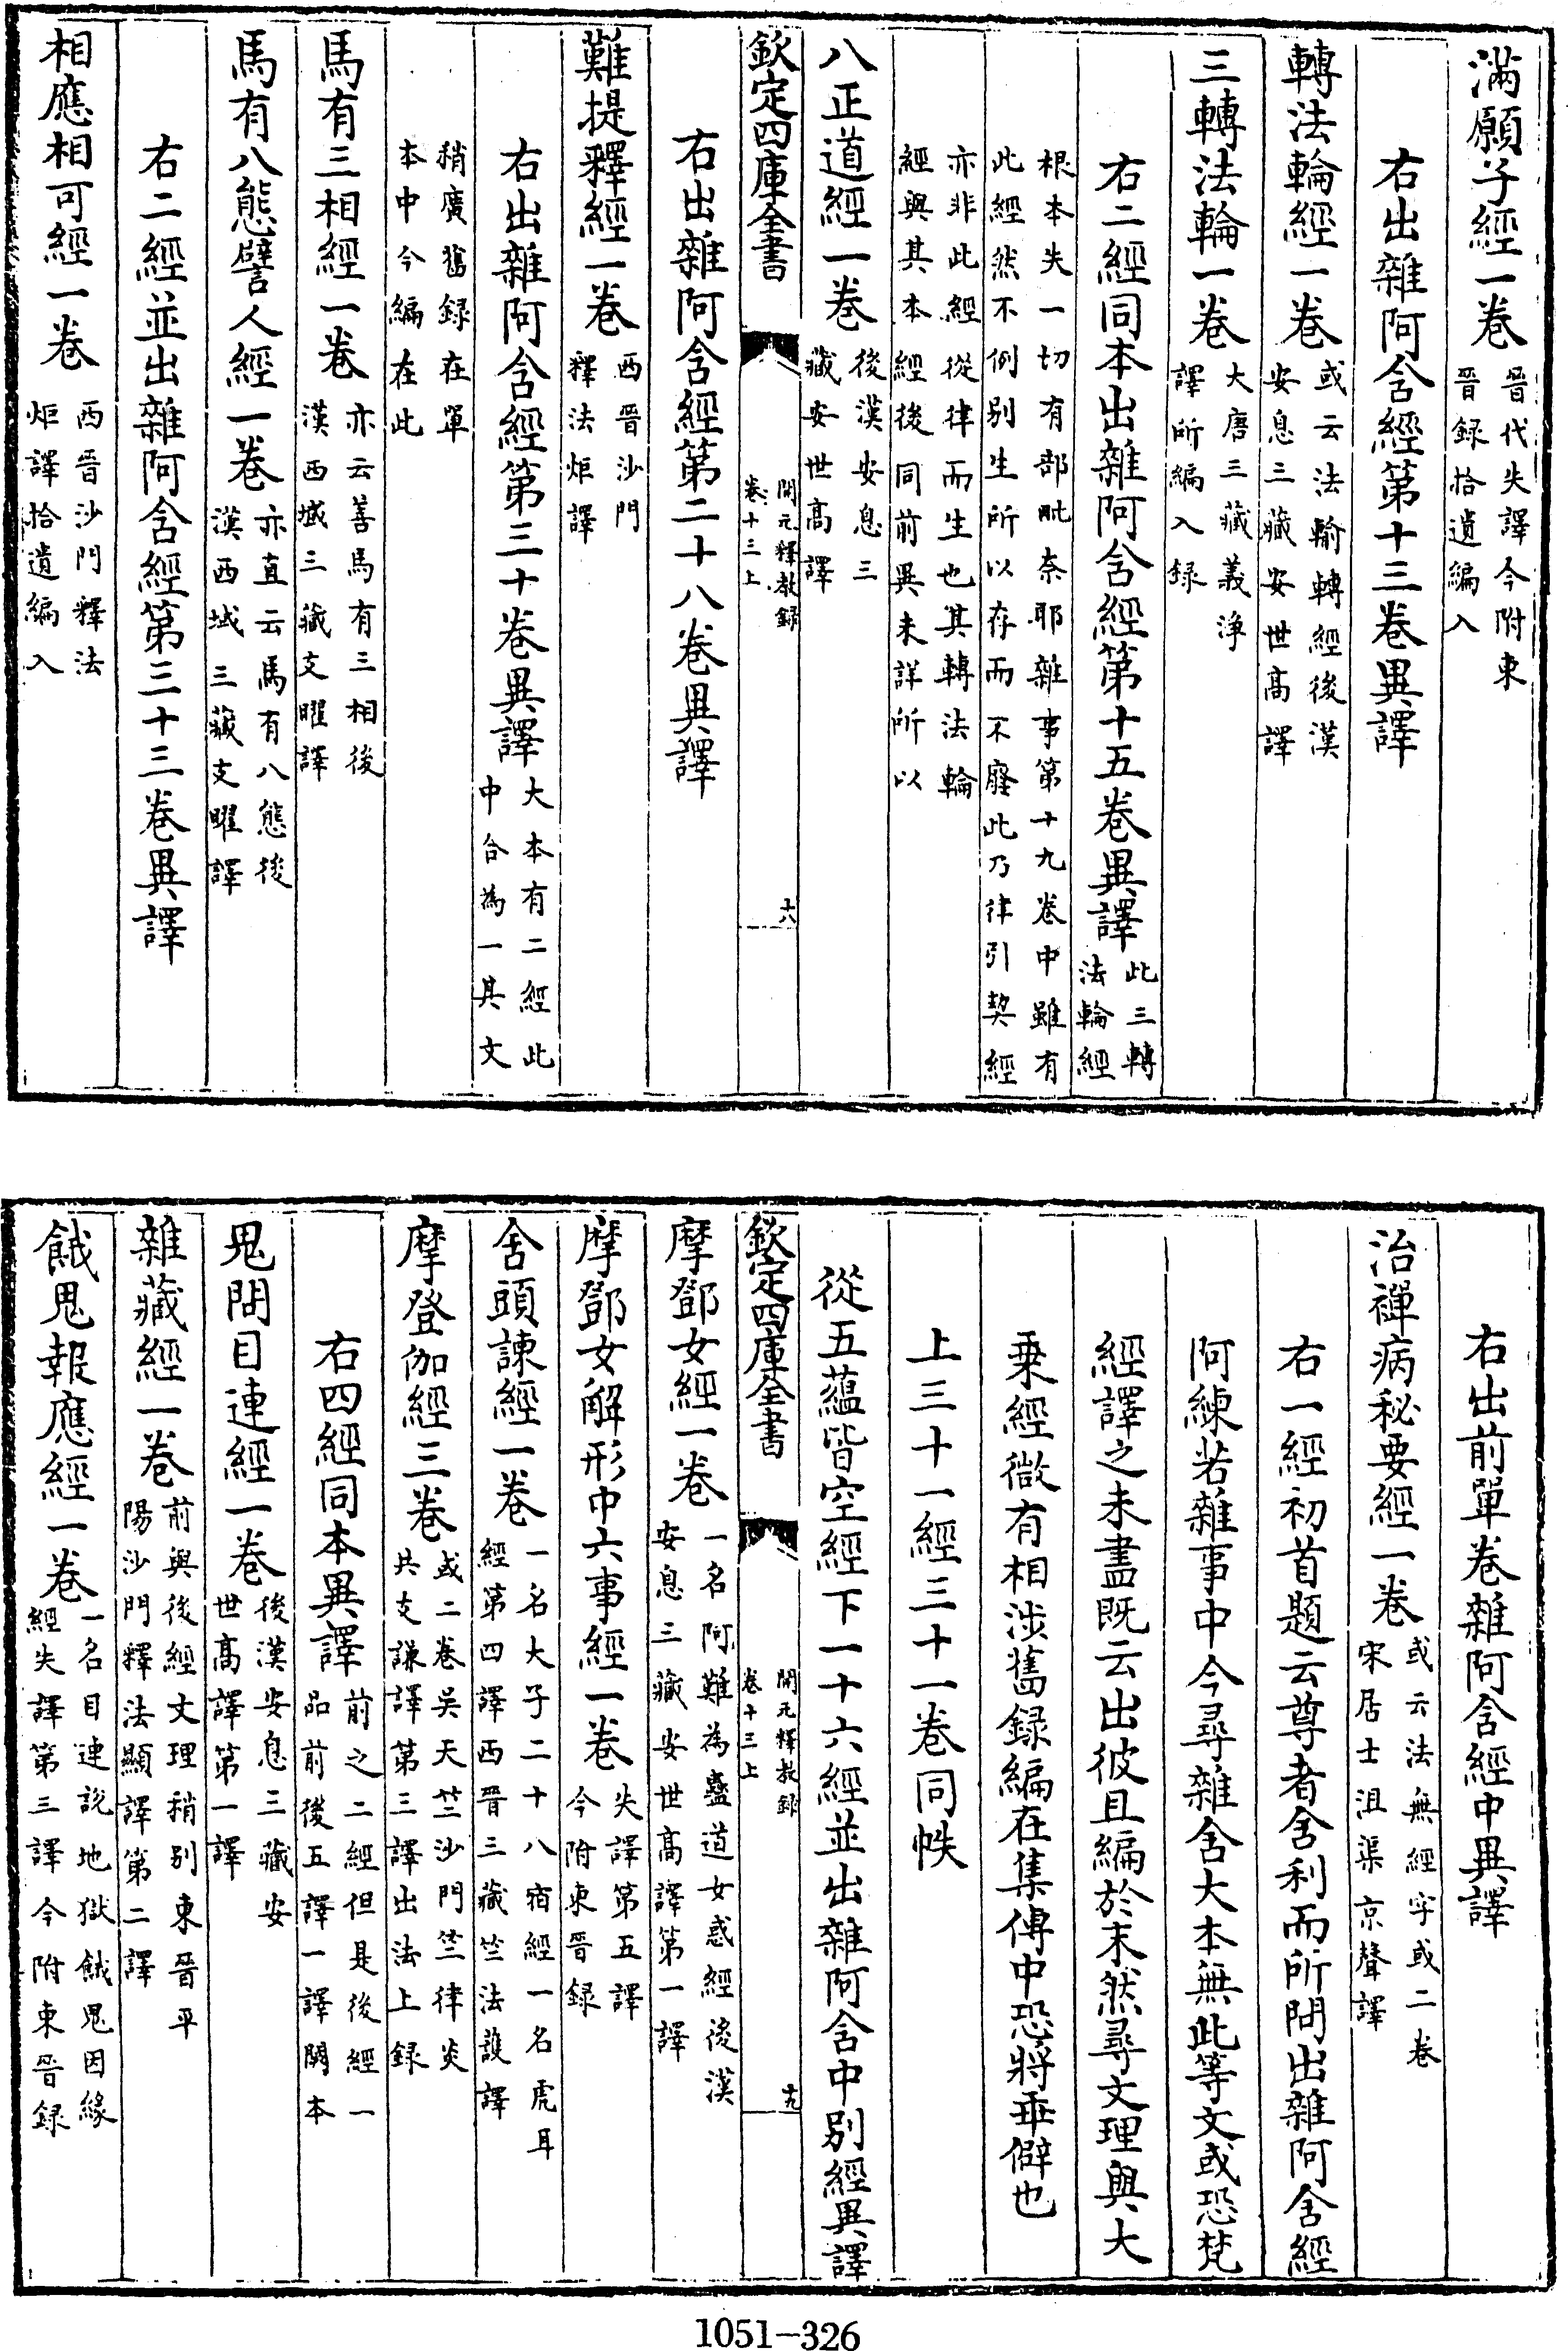 滿願子經一卷晉代失譯今附東晉録拾遺編入
右出雜阿含經第十三卷異譯
轉法輪經一卷或云法輪轉經後漢安息三藏安世高譯
三轉法輪一卷大唐三藏義淨譯所編入録
右二經同本出雜阿含經第十五卷異譯此三轉法輪經
根本失一切有部毗奈耶雜事第十九卷中雖有此經然不例别生所以存而不廢此乃律引契經
亦非此經從律而生也其轉法輪經與其本經後同前異未詳所以
八正道經一卷後漢安息三藏安世高譯
欽定四庫全書 開元釋教録卷十三上 十八
右出雜阿含經第二十八卷異譯
難提釋經一卷西晉沙門釋法炬譯
右出雜阿含經第三十卷異譯大本有二經此中合為一其文
稍廣舊録在單本中今編在此
馬有三相經一卷亦云善馬有三相後漢西域三藏支曜譯
馬有八態譬人經一卷亦直云馬有八態後漢西域三藏支曜譯
右二經並出雜阿含經第三十三卷異譯
相應相可經一卷西晉沙門釋法炬譯拾遺編入
右出前單卷雜阿含經中異譯
治禪病秘要經一卷或云法無經字或二卷宋居士沮渠京聲譯
右一經初首題云尊者舍利而所問出雜阿含經
阿練若雜事中今尋雜含大本無此等文或恐梵
經譯之未盡既云出彼且編於末然尋文理與大
乗經微有相涉舊録編在集傳中恐將乖僻也
上三十一經三十一卷同帙
從五蘊皆空經下一十六經並出雜阿含中别經異譯
欽定四庫全書 開元釋教録卷十三上 十九
摩鄧女經一卷一名阿難為蠱道女惑經後漢安息三藏安世高譯第一譯
摩鄧女解形中六事經一卷失譯第五譯今附東晉録
舍頭諫經一卷一名大子二十八宿經一名虎耳經第四譯西晉三藏竺法護譯
摩登伽經三卷或二卷吳天竺沙門竺律炎共支謙譯第三譯出法上録
右四經同本異譯前之二經但是後經一品前後五譯一譯闕本
鬼問目連經一卷後漢安息三藏安世高譯第一譯
雜藏經一卷前與後經文理稍别東晉平陽沙門釋法顯譯第二譯
餓鬼報應經一卷一名目連說地獄餓鬼因緣經失譯第三譯今附東晉録
1051-326